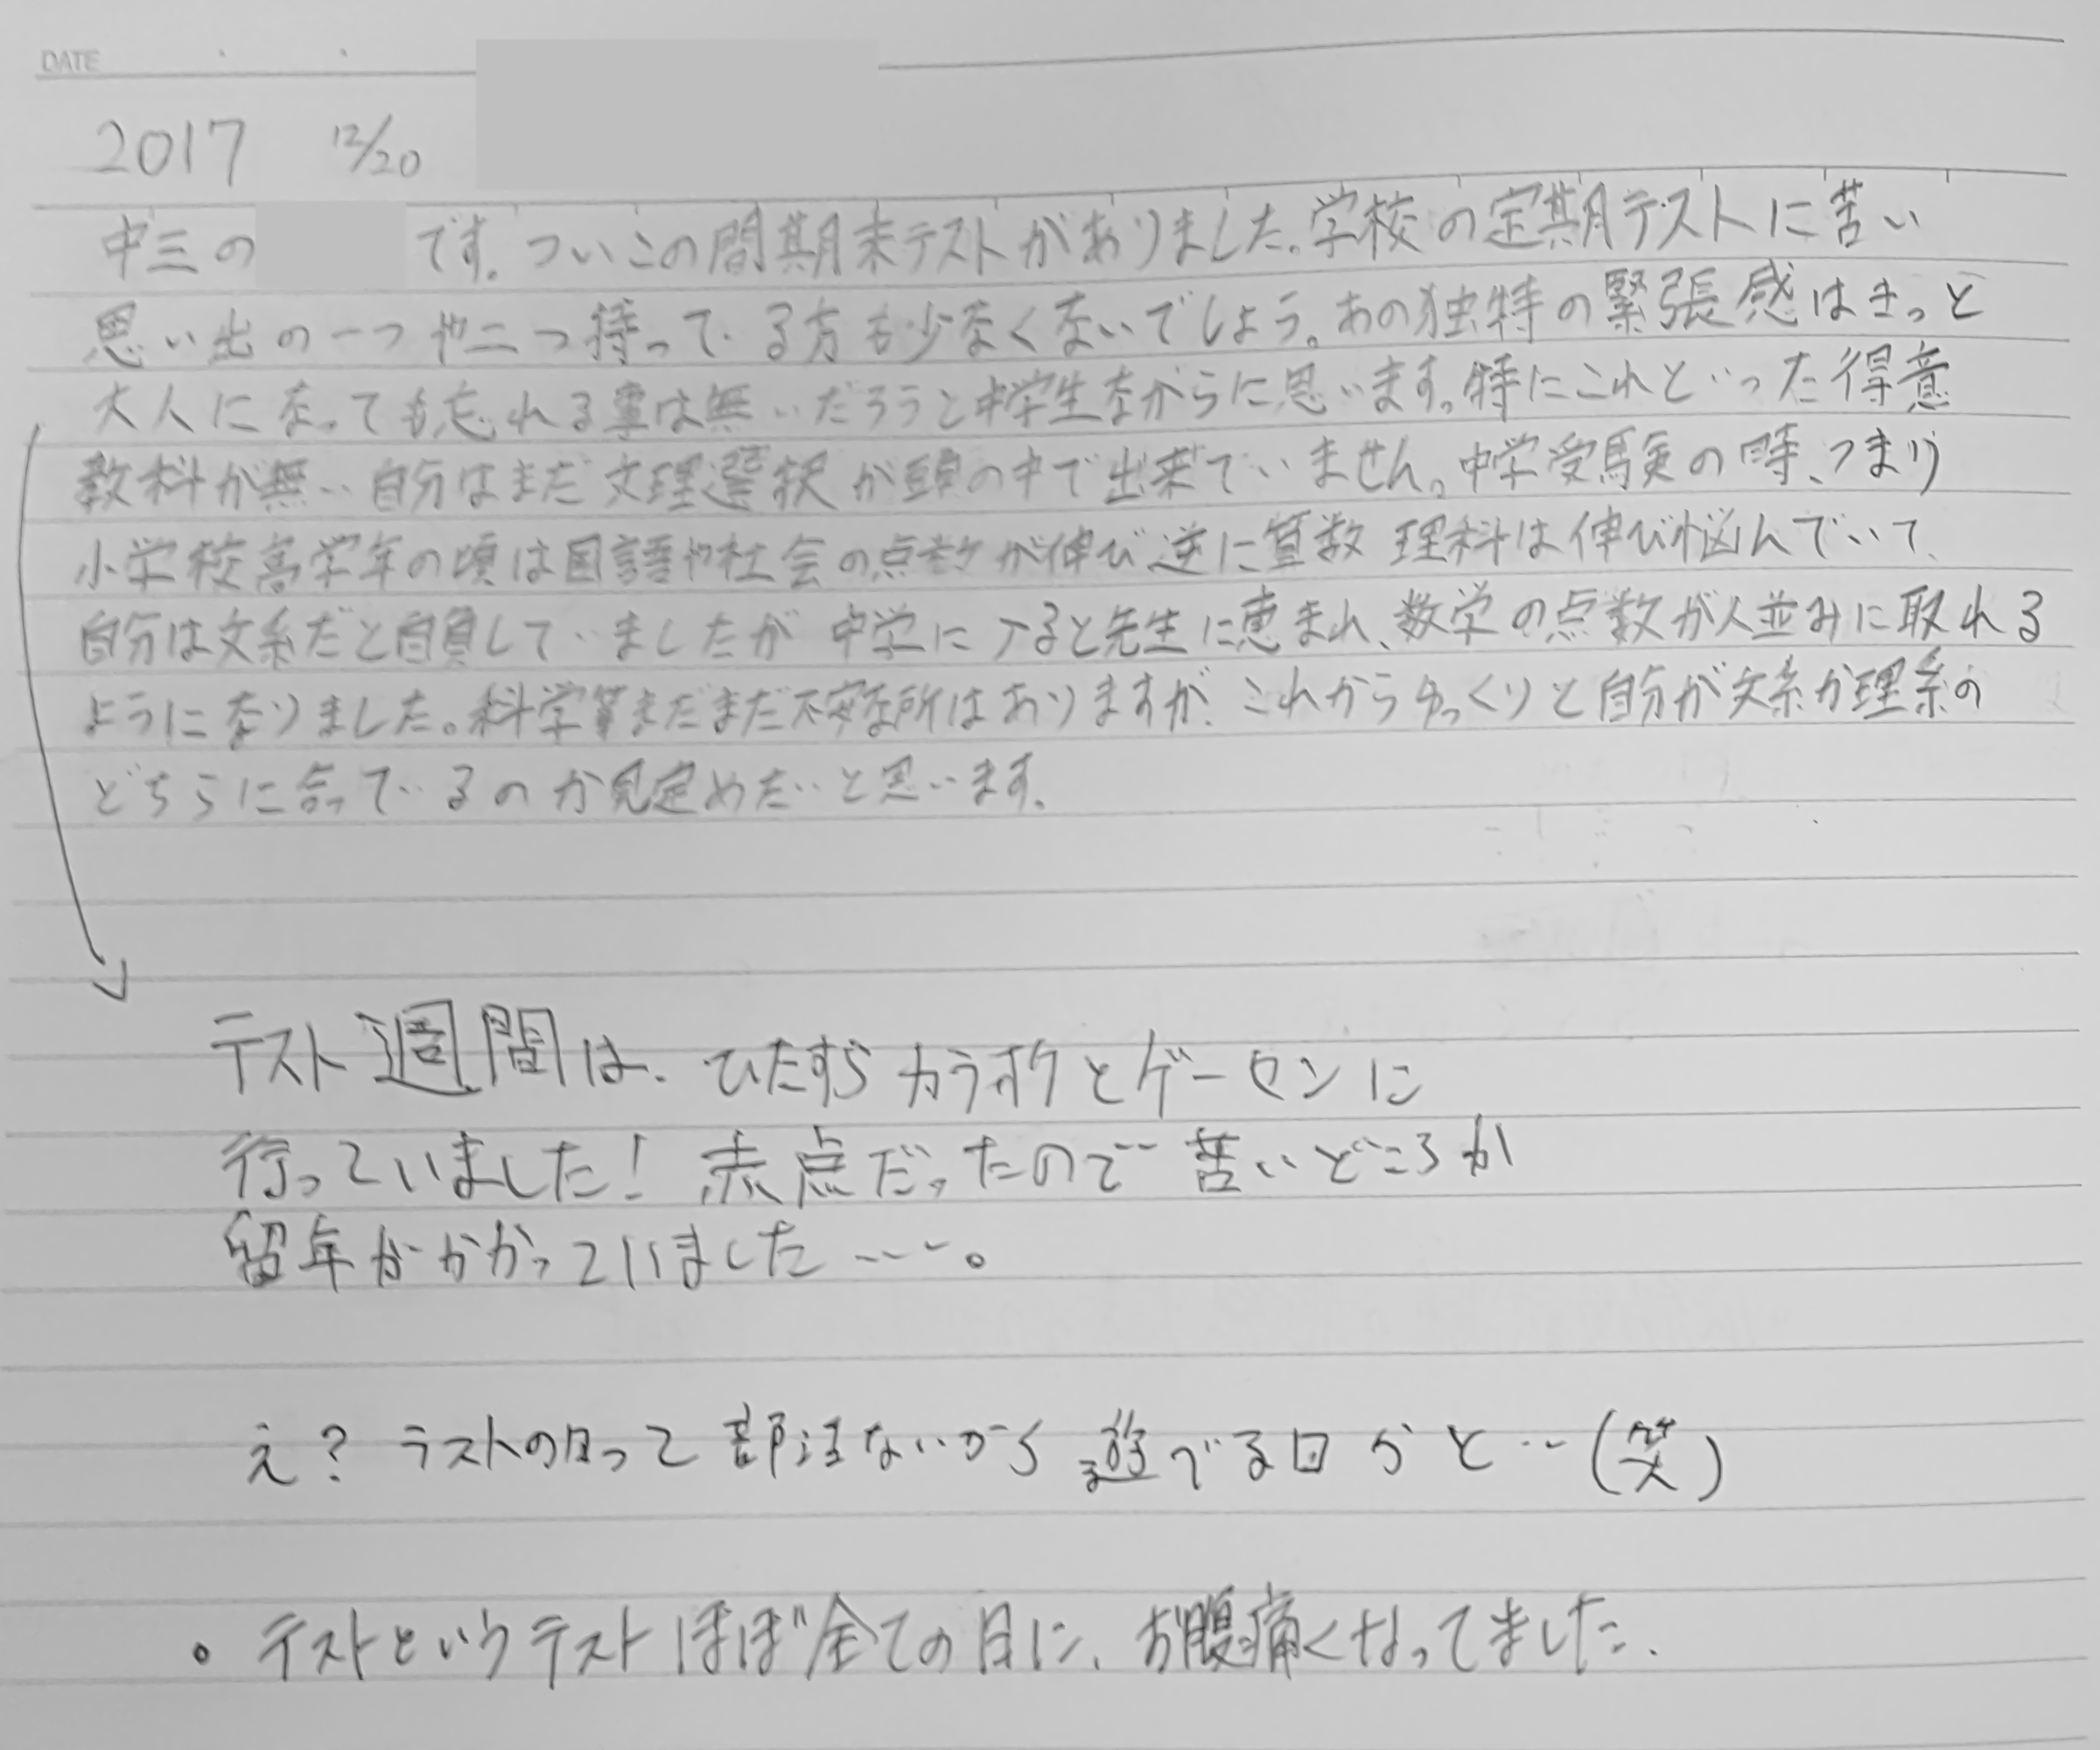 DATE
2017 12/20
中三の です。ついこの間期末テストがありました。学校の定期テストに苦い
思い出の一つや二つ持っている方も少なくないでしょう。あの独特の緊張感はきっと
大人になっても忘れる事は無いだろうと中学生ながらに思います。特にこれといった得意
教科が無い自分はまだ文理選択が頭の中で出来ていません。中学受験の時、つまり
小学校高学年の頃は国語や社会の点数が伸び逆に算数理科は伸び悩んでいて、
自分は文系だと自負していましたが中学に入ると先生に恵まれ、数学の点数が人並みに取れる
ようになりました。科学等まだまだ不安な所はありますが、これからゆっくりと自分が文系か理系の
どちらに合っているのか見定めたいと思います。
テスト週間は、ひたすらカラオケとゲーセンに
行っていました！赤点だったので苦いどころか
留年がかかっていました……。
え？テストの日って部活ないから遊べる日かと…(笑)
・テストというテストほぼ全ての日に、お腹痛くなってました。